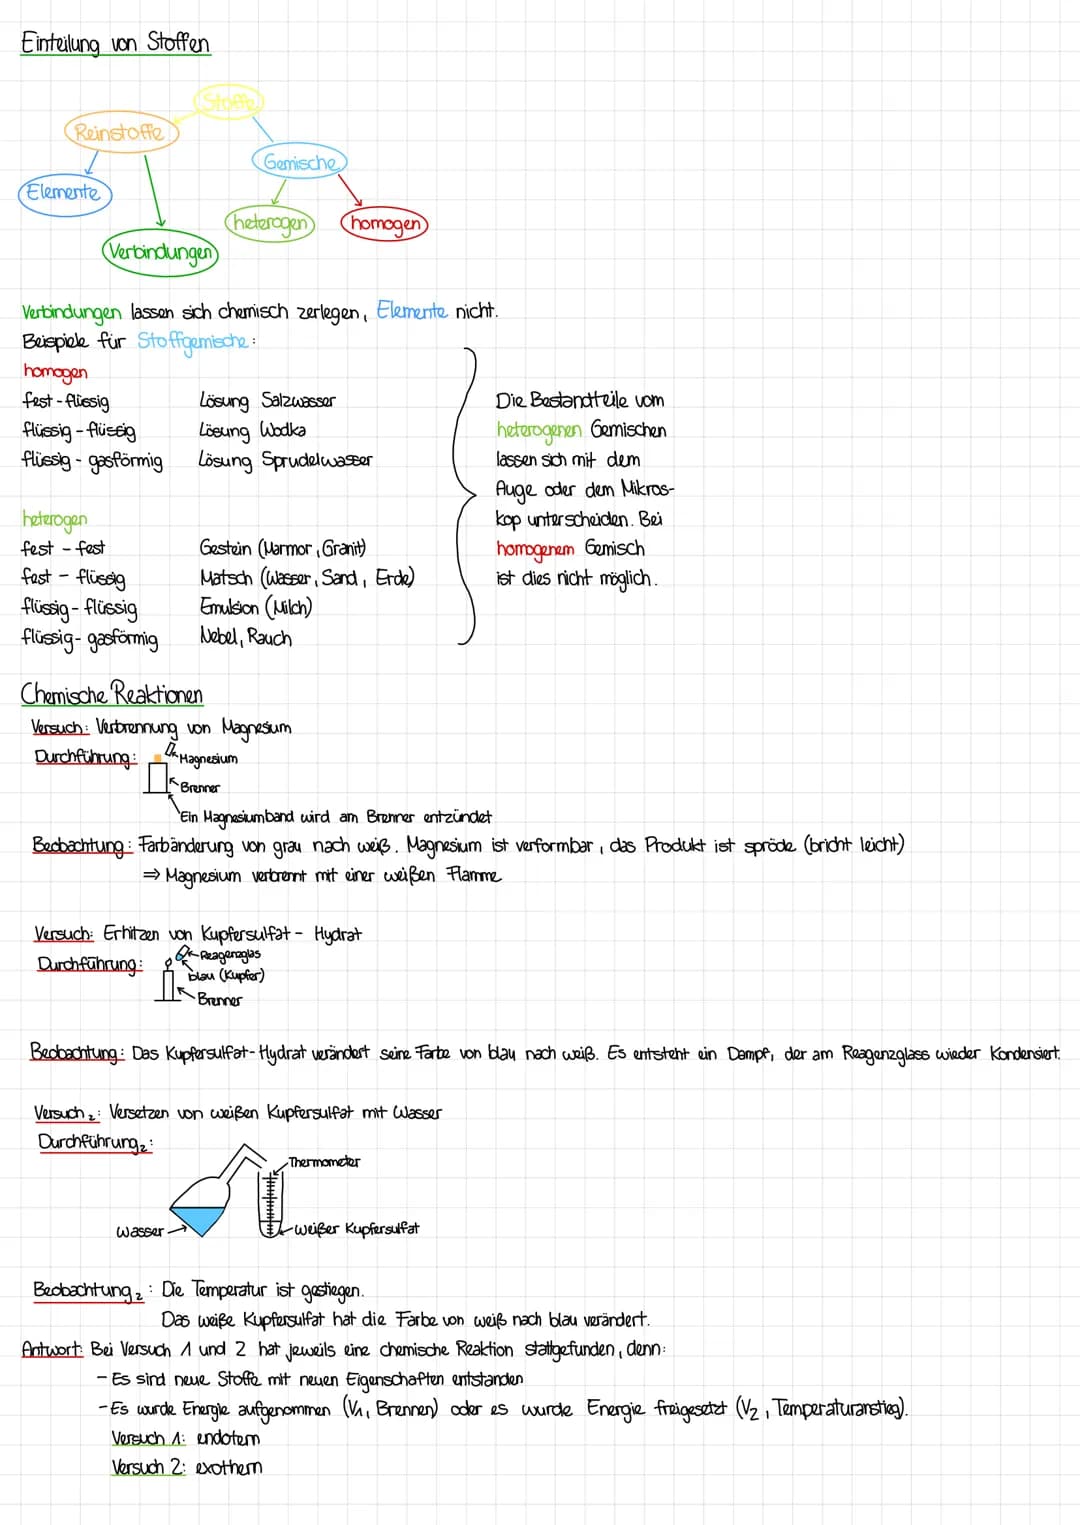 Einteilung von Stoffen
Stoffe
Reinstoffe
Gemische
Elemente
heterogen
homogen
Verbindungen
Verbindungen lassen sich chemisch zerlegen, Elemente nicht.
Beispiele für Stoffgemische:
homogen
fest - flüssig Lösung Salzwasser
flüssig - flüssig Lösung Wodka
flüssig - gasförmig Lösung Sprudelwasser
heterogen
fest - fest Gestein (Marmor, Granit)
fest - flüssig Matsch (Wasser, Sand, Erde)
flüssig - flüssig Emulsion (Milch)
flüssig - gasförmig Nebel, Rauch
Die Bestandteile vom
heterogenen Gemischen
lassen sich mit dem
Auge oder dem Mikros-
kop unterscheiden. Bei
homogenem Gemisch
ist dies nicht möglich.
Chemische Reaktionen
Versuch: Verbrennung von Magnesium
Durchführung:
Magnesium
Brenner
Ein Magnesiumband wird am Brenner entzündet
Beobachtung: Farbänderung von grau nach weiß. Magnesium ist verformbar, das Produkt ist spröde (bricht leicht)
⇒ Magnesium verbrennt mit einer weißen Flamme
Versuch: Erhitzen von Kupfersulfat - Hydrat
Durchführung:
Reagenzglas
blau (Kupfer)
Brenner
Beobachtung: Das Kupfersulfat-Hydrat verändert seine Farbe von blau nach weiß. Es entsteht ein Dampf, der am Reagenzglass wieder Kondensiert.
Versuch₂: Versetzen von weißen Kupfersulfat mit Wasser
Durchführung₂:
Thermometer
Wasser
weißer Kupfersulfat
Beobachtung₂: Die Temperatur ist gestiegen.
Das weiße Kupfersulfat hat die Farbe von weiß nach blau verändert.
Antwort: Bei Versuch 1 und 2 hat jeweils eine chemische Reaktion stattgefunden, denn:
- Es sind neue Stoffe mit neuen Eigenschaften entstanden
- Es wurde Energie aufgenommen (V₁, Brennen) oder es wurde Energie freigesetzt (V₂, Temperaturanstieg).
Versuch 1: endotem
Versuch 2: exothem